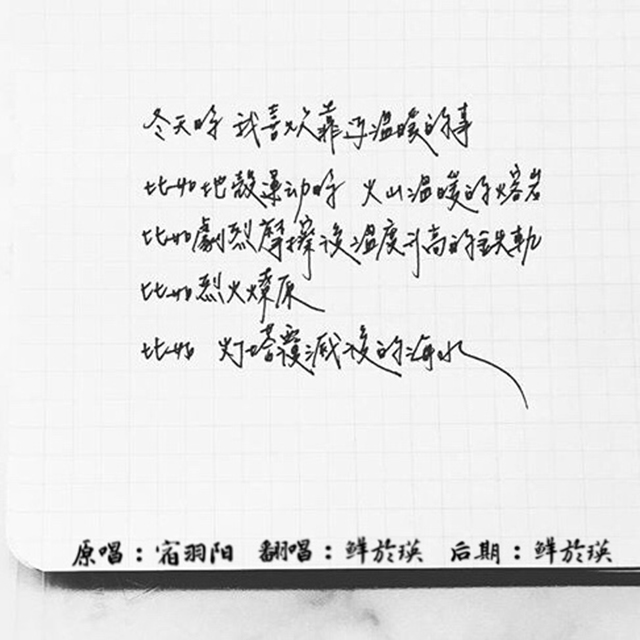 冬天时 我喜欢靠近温暖的事
比如地殼運动时 火山温暖的熔岩
比如劇烈摩擦後温度升高的鉄軌
比如烈火燎原
比如 灯塔覆滅後的海水
原唱：宿羽阳 翻唱：鲜於瑛 后期：鲜於瑛